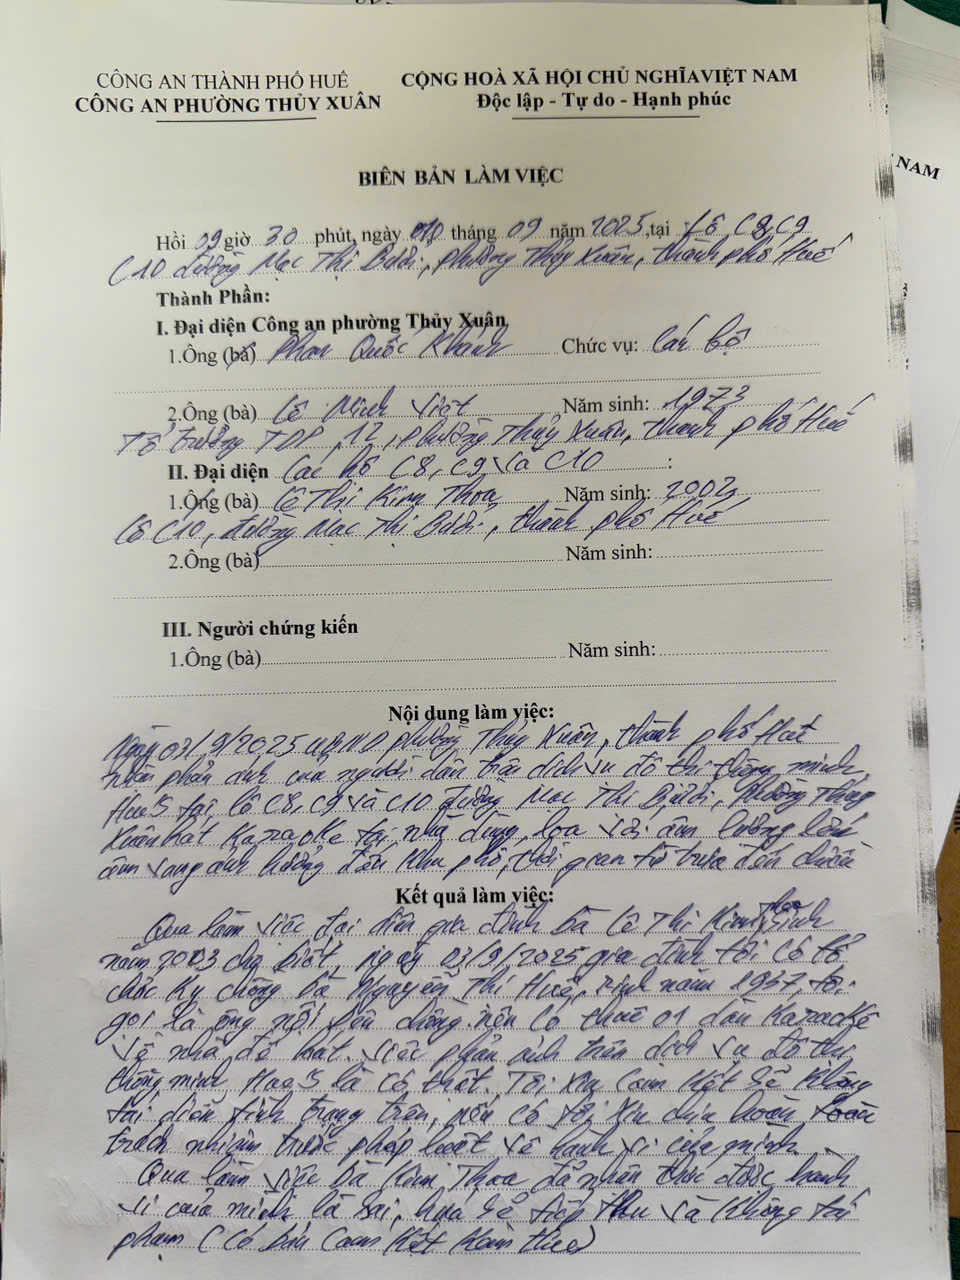 CÔNG AN THÀNH PHỐ HUẾ
CÔNG AN PHƯỜNG THỦY XUÂN
CỘNG HOÀ XÃ HỘI CHỦ NGHĨA VIỆT NAM
Độc lập - Tự do - Hạnh phúc
NAM
BIÊN BẢN LÀM VIỆC
Hồi 09 giờ 30 phút, ngày tháng 09 năm 2025, tại Lô C8, C9
C10 đường Mạc Thị Bưởi, phường Thủy Xuân, thành phố Huế
Thành Phần:
I. Đại diện Công an phường Thủy Xuân
1.Ông (bà) Phan Quốc Khánh Chức vụ: Cán bộ
2.Ông (bà) Lê Minh Việt Năm sinh: 1973
Tổ trưởng TDP 12, phường Thủy Xuân, thành phố Huế
II. Đại diện Các hộ C8, C9 và C10 :
1.Ông (bà) Lê Thị Kim Thoa Năm sinh:
Lô C10, đường Mạc Thị Bưởi, thành phố Huế
2.Ông (bà) Năm sinh:
III. Người chứng kiến
1.Ông (bà) Năm sinh:
Nội dung làm việc:
Ngày 03/9/2025 UBND phường Thủy Xuân, thành phố Huế
nhận phản ánh của người dân trên dịch vụ đô thị thông minh
HueS tại lô C8, C9 và C10 đường Mạc Thị Bưởi, phường Thủy
Xuân hát Karaoke tại nhà dùng loa với âm lượng lớn
âm vang ảnh hưởng đến khu phố, thời gian từ trưa đến chiều
Kết quả làm việc:
Qua làm việc đại diện gia đình bà Lê Thị Kim Thoa sinh
năm cho biết, ngày 03/9/2025 gia đình tôi có tổ
chức kỵ chồng bà Nguyễn Thị Huê, sinh năm 1937, tôi
gọi là ông nội bên chồng nên có thuê 01 dàn Karaoke
về nhà để hát. Việc phản ánh trên dịch vụ đô thị
thông minh HueS là có thật. Tôi xin cam kết sẽ không
tái diễn tình trạng trên, nếu có tôi xin chịu hoàn toàn
trách nhiệm trước pháp luật về hành vi của mình
Qua làm việc bà Kim Thoa đã nhận thức được hành
vi của mình là sai, hứa sẽ tiếp thu và không tái
phạm (Có bản Cam kết kèm theo)